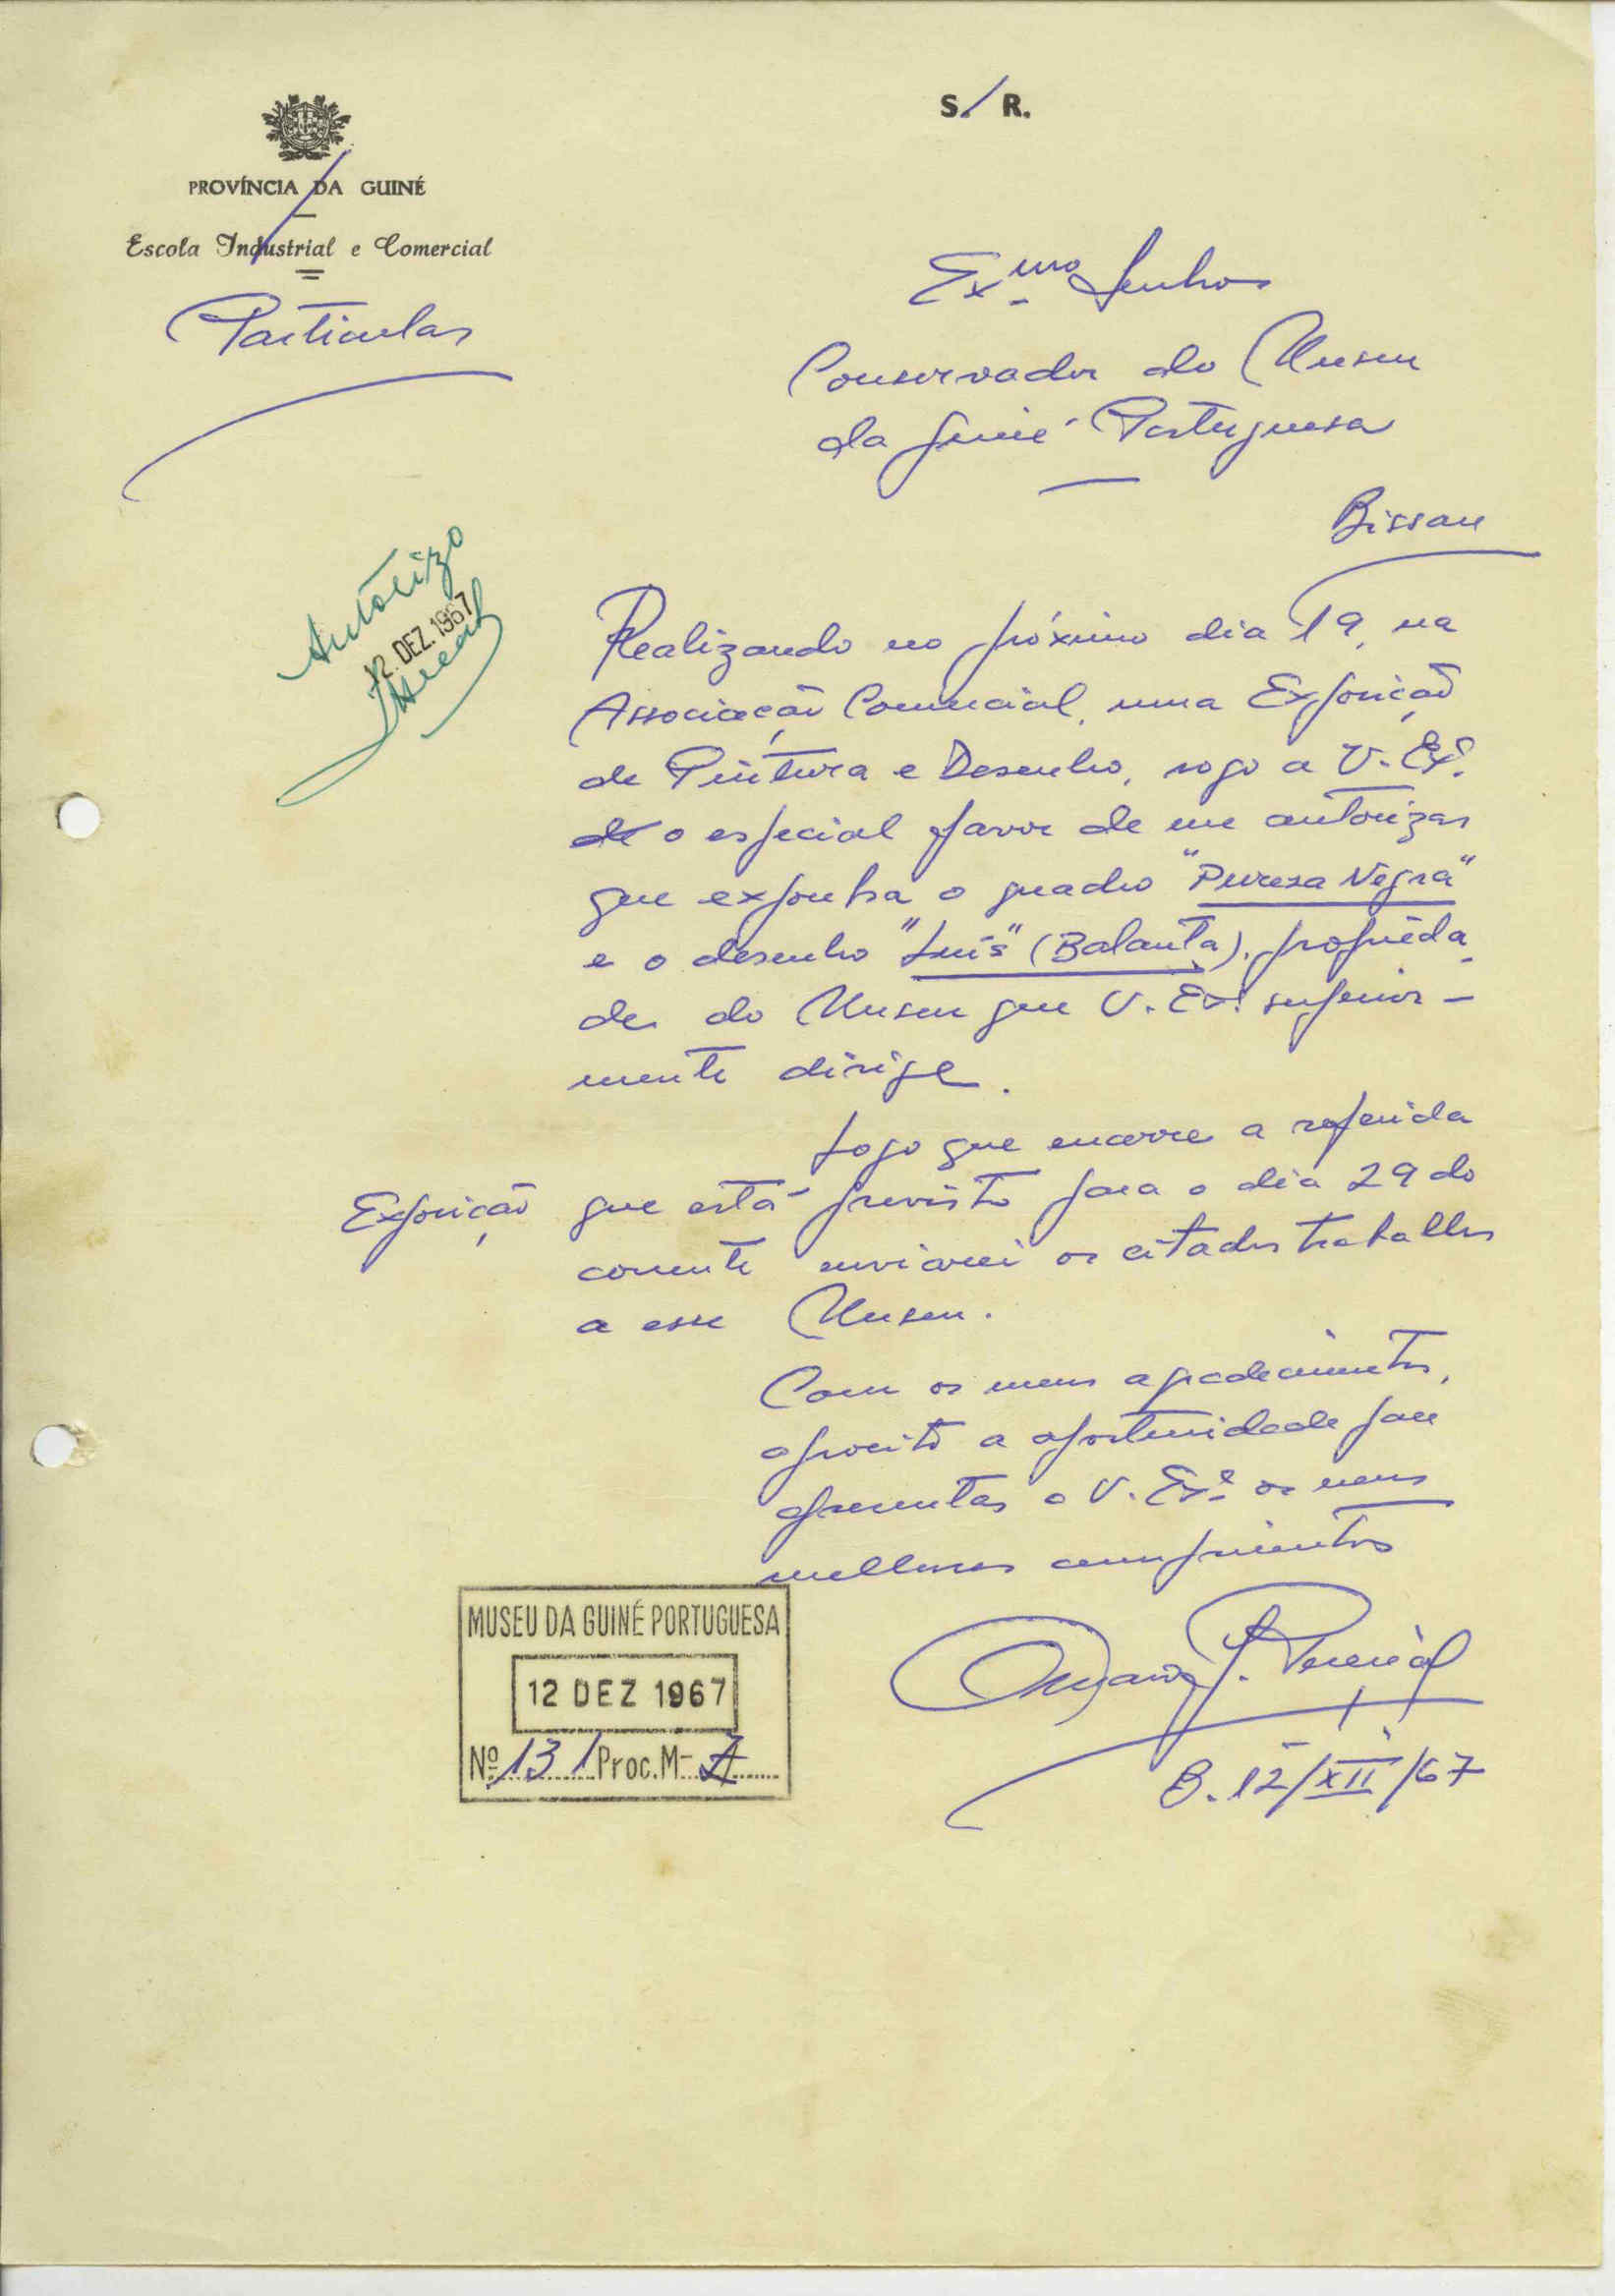 S. R.
PROVÍNCIA DA GUINÉ
Escola Industrial e Comercial
Particular
Ex.mo Senhor
Conservador do Museu
da Guiné Portuguesa
Bissau
Autorizo
12.DEZ.1967
Realizando no próximo dia 19, na
Associação Comercial, uma Exposição
de Pintura e Desenho, rogo a V. Exª.
de o especial favor de me autorizar
que exponha o quadro "Pureza Negra"
e o desenho "Luís" (Balanta), proprieda-
de do Museu que V. Exª. superior-
mente dirige.
Logo que encerre a referida
Exposição que está previsto para o dia 29 do
corrente enviarei os citados trabalhos
a esse Museu.
Com os meus agradecimentos,
aproveito a oportunidade para
apresentar a V. Exª. os meus
melhores cumprimentos
B. 12/XII/67
MUSEU DA GUINÉ PORTUGUESA
12 DEZ 1967
Nº 131 Proc. M-7